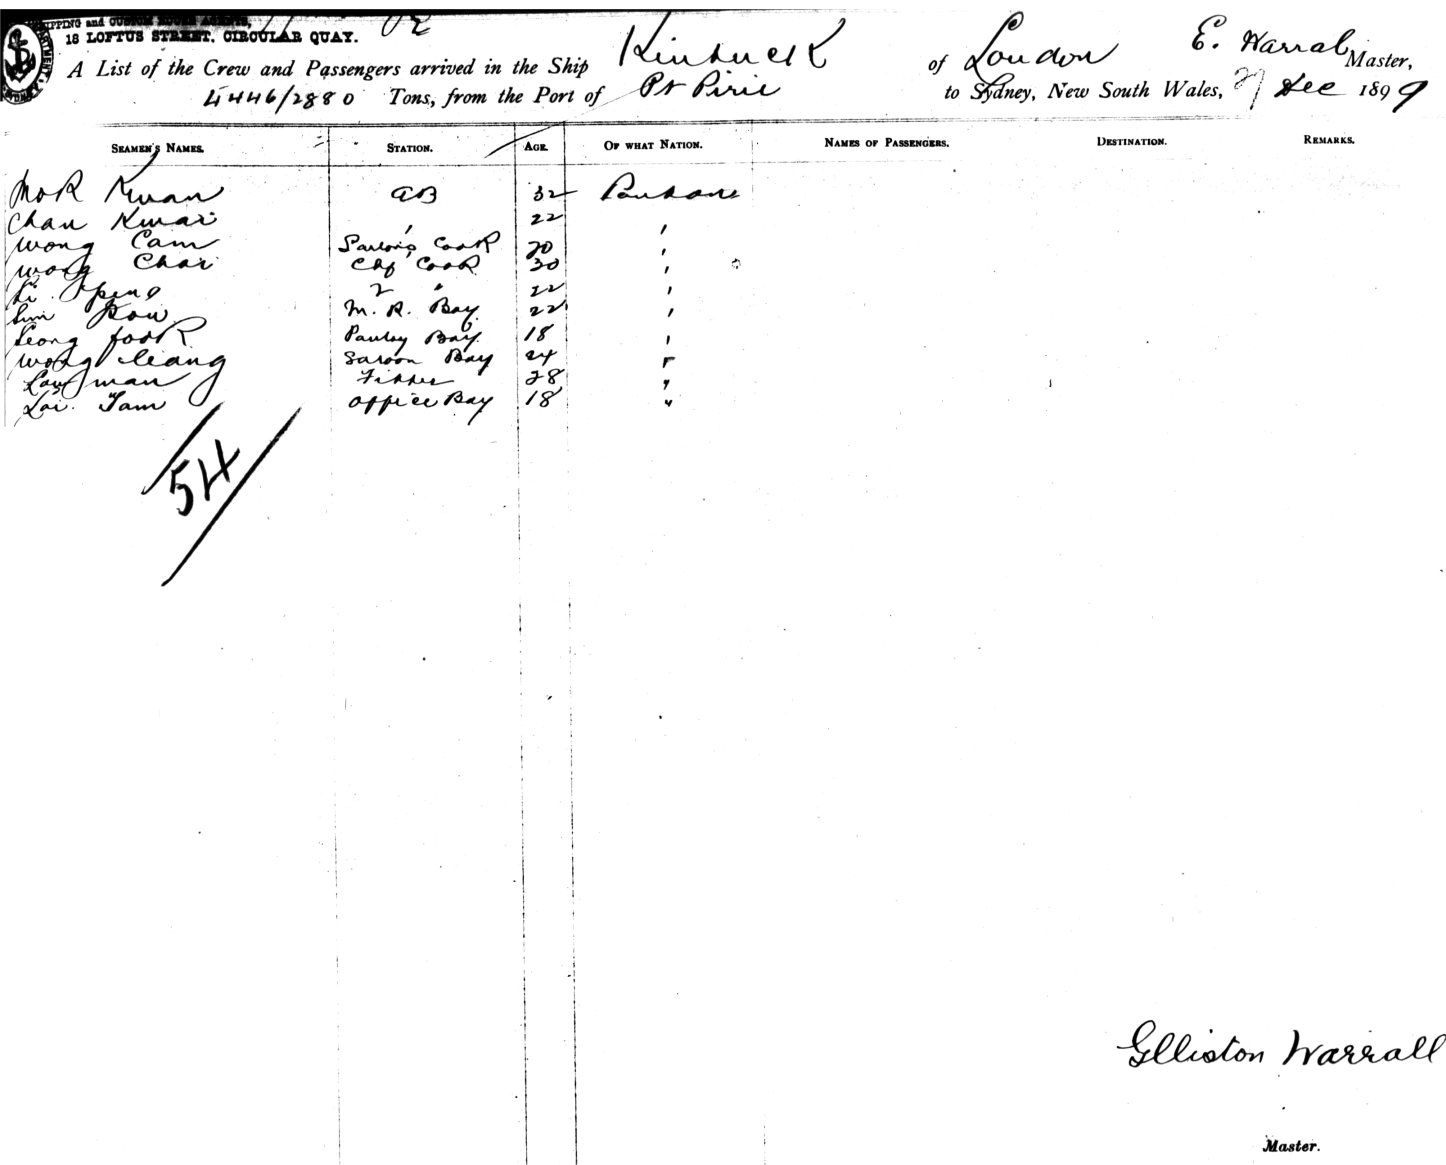 SHIPPING and CUSTOM HOUSE AGENTS,
18 LOFTUS STREET, CIRCULAR QUAY.
A List of the Crew and Passengers arrived in the Ship Kintuck of London E. Warral Master,
4446/2880 Tons, from the Port of Pt Pirie to Sydney, New South Wales, 27 Dec 1899
SEAMEN'S NAMES. STATION. AGE. OF WHAT NATION. NAMES OF PASSENGERS. DESTINATION. REMARKS.
Mok Kwan AB 32
Chan Kwai " 22 "
Wong Cam Saloon Cook 20 "
Wong Chai Chf Cook 30 "
Li 2 " 22 "
Sim Kow M. R. Boy 22 "
Leong fook Pantry Boy 18 "
Wong leang Saloon Boy 24 "
Law man 28 "
Lai Tam Office Boy 18 "
54
G Elliston Warrall
Master.